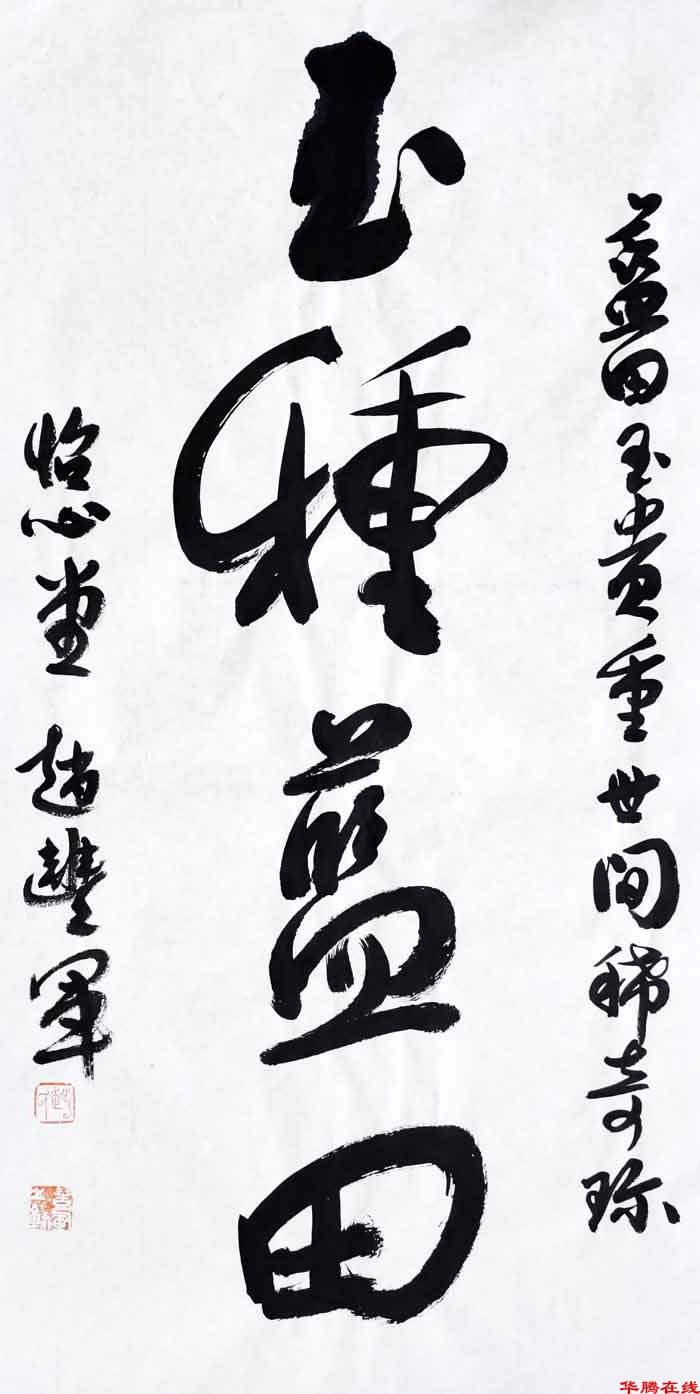 藍田玉貴重世间稀奇珎
玉種藍田
怡心堂 趙豐軍
华腾在线